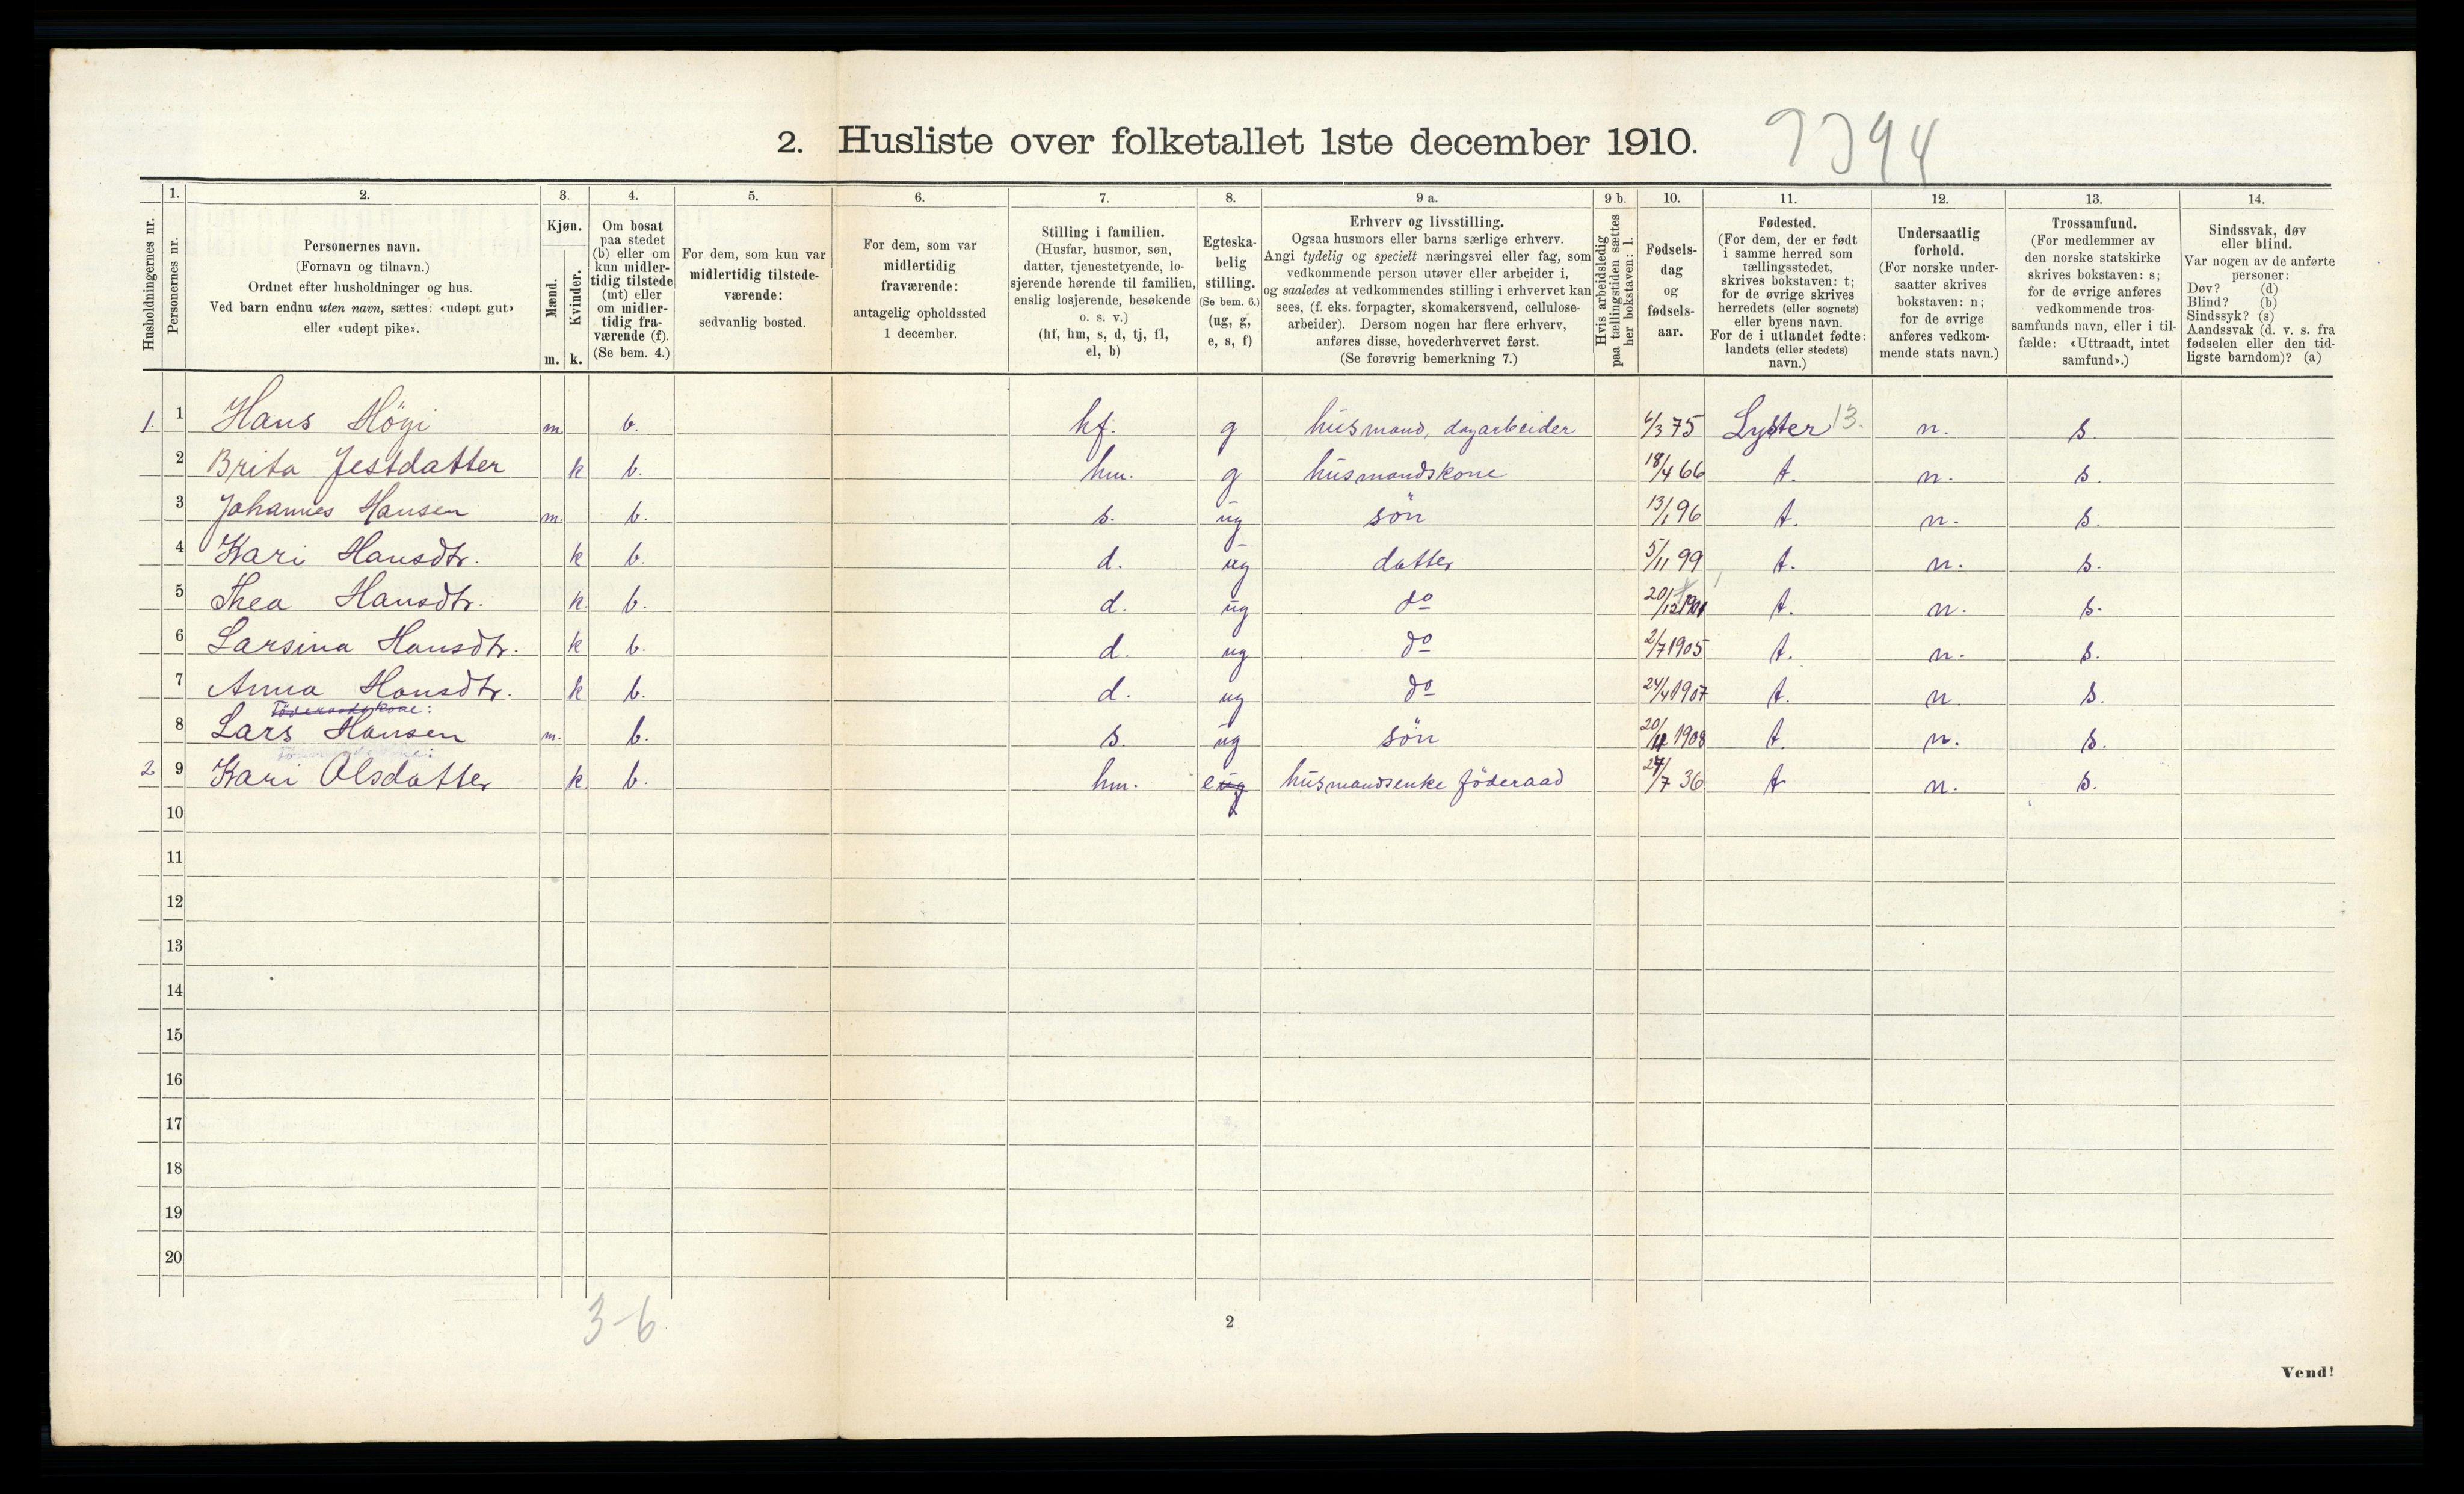 2. Husliste over folketallet 1ste december 1910.
Husholdningernes nr.
1.
Personernes nr.
2.
Personernes navn.
(Fornavn og tilnavn.)
Ordnet efter husholdninger og hus.
Ved barn endnu uten navn, sættes: «udøpt gut»
eller «udøpt pike».
3.
Kjøn.
Mænd.
m.
Kvinder.
k.
4.
Om bosat
paa stedet
(b) eller om
kun midler-
tidig tilstede
(mt) eller
om midler-
tidig fra-
værende (f).
(Se bem. 4.)
5.
For dem, som kun var
midlertidig tilstede-
værende:
sedvanlig bosted.
6.
For dem, som var
midlertidig
fraværende:
antagelig opholdssted
1 december.
7.
Stilling i familien.
(Husfar, husmor, søn,
datter, tjenestetyende, lo-
sjerende hørende til familien,
enslig losjerende, besøkende
o. s. v.)
(hf, hm, s, d, tj, fl,
el, b)
8.
Egteska-
belig
stilling.
(Se bem. 6.)
(ug, g,
e, s, f)
9 a.
Erhverv og livsstilling.
Ogsaa husmors eller barns særlige erhverv.
Angi tydelig og specielt næringsvei eller fag, som
vedkommende person utøver eller arbeider i,
og saaledes at vedkommendes stilling i erhvervet kan
sees, (f. eks. forpagter, skomakersvend, cellulose-
arbeider). Dersom nogen har flere erhverv,
anføres disse, hovederhvervet først.
(Se forøvrig bemerkning 7.)
9 b.
Hvis arbeidsledig
paa tællingstiden sættes
her bokstaven: l.
10.
Fødsels-
dag
og
fødsels-
aar.
11.
Fødested.
(For dem, der er født
i samme herred som
tællingsstedet,
skrives bokstaven: t;
for de øvrige skrives
herredets (eller sognets)
eller byens navn.
For de i utlandet fødte:
landets (eller stedets)
navn.)
12.
Undersaatlig
forhold.
(For norske under-
saatter skrives
bokstaven: n;
for de øvrige
anføres vedkom-
mende stats navn.)
13.
Trossamfund.
(For medlemmer av
den norske statskirke
skrives bokstaven: s;
for de øvrige anføres
vedkommende tros-
samfunds navn, eller i til-
fælde: «Uttraadt, intet
samfund».)
14.
Sindssvak, døv
eller blind.
Var nogen av de anførte
personer:
Døv? (d)
Blind? (b)
Sindssyk? (s)
Aandssvak (d. v. s. fra
fødselen eller den tid-
ligste barndom)? (a)
1. 1 Hans Högi m. b. hf. g husmand, dagarbeider 6/3 75 Lyster 13. n. s.
2 Brita Jestdatter k b. hm. g husmandskone 18/4 66 t. n. s.
3 Johannes Hansen m. b. s. ug sön 13/1 96 t. n. s.
4 Kari Hansdtr. k b. d. ug datter 5/11 99 t. n. s.
5 Thea Hansdtr. k. b. d. ug do 20/12 1901 t. n. s.
6 Larsina Hansdtr. k b. d. ug do 2/7 1905 t. n. s.
7 Anna Hansdtr. k b. d. ug do 24/4 1907 t. n. s.
Föderaadskone:
8 Lars Hansen m. b. s. ug sön 20/12 1908 t. n. s.
2 9 Kari Olsdatter k. b. hm. e ug husmandsenke föderaad 27/7 36 t n. s.
10
11
12
13
14
15
16
17
18
19
20
3-6
2
Vend!